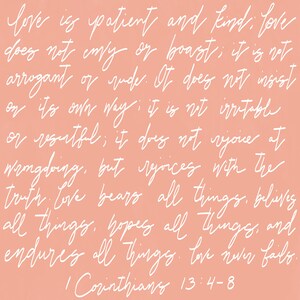 love is patient and kind; love
does not envy or boast; it is not
arrogant or rude. It does not insist
on its own way; it is not irritable
or resentful; it does not rejoice at
wrongdoing, but rejoices with the
truth. Love bears all things, believes
all things, hopes all things, and
endures all things. love never fails.
1 Corinthians 13:4-8